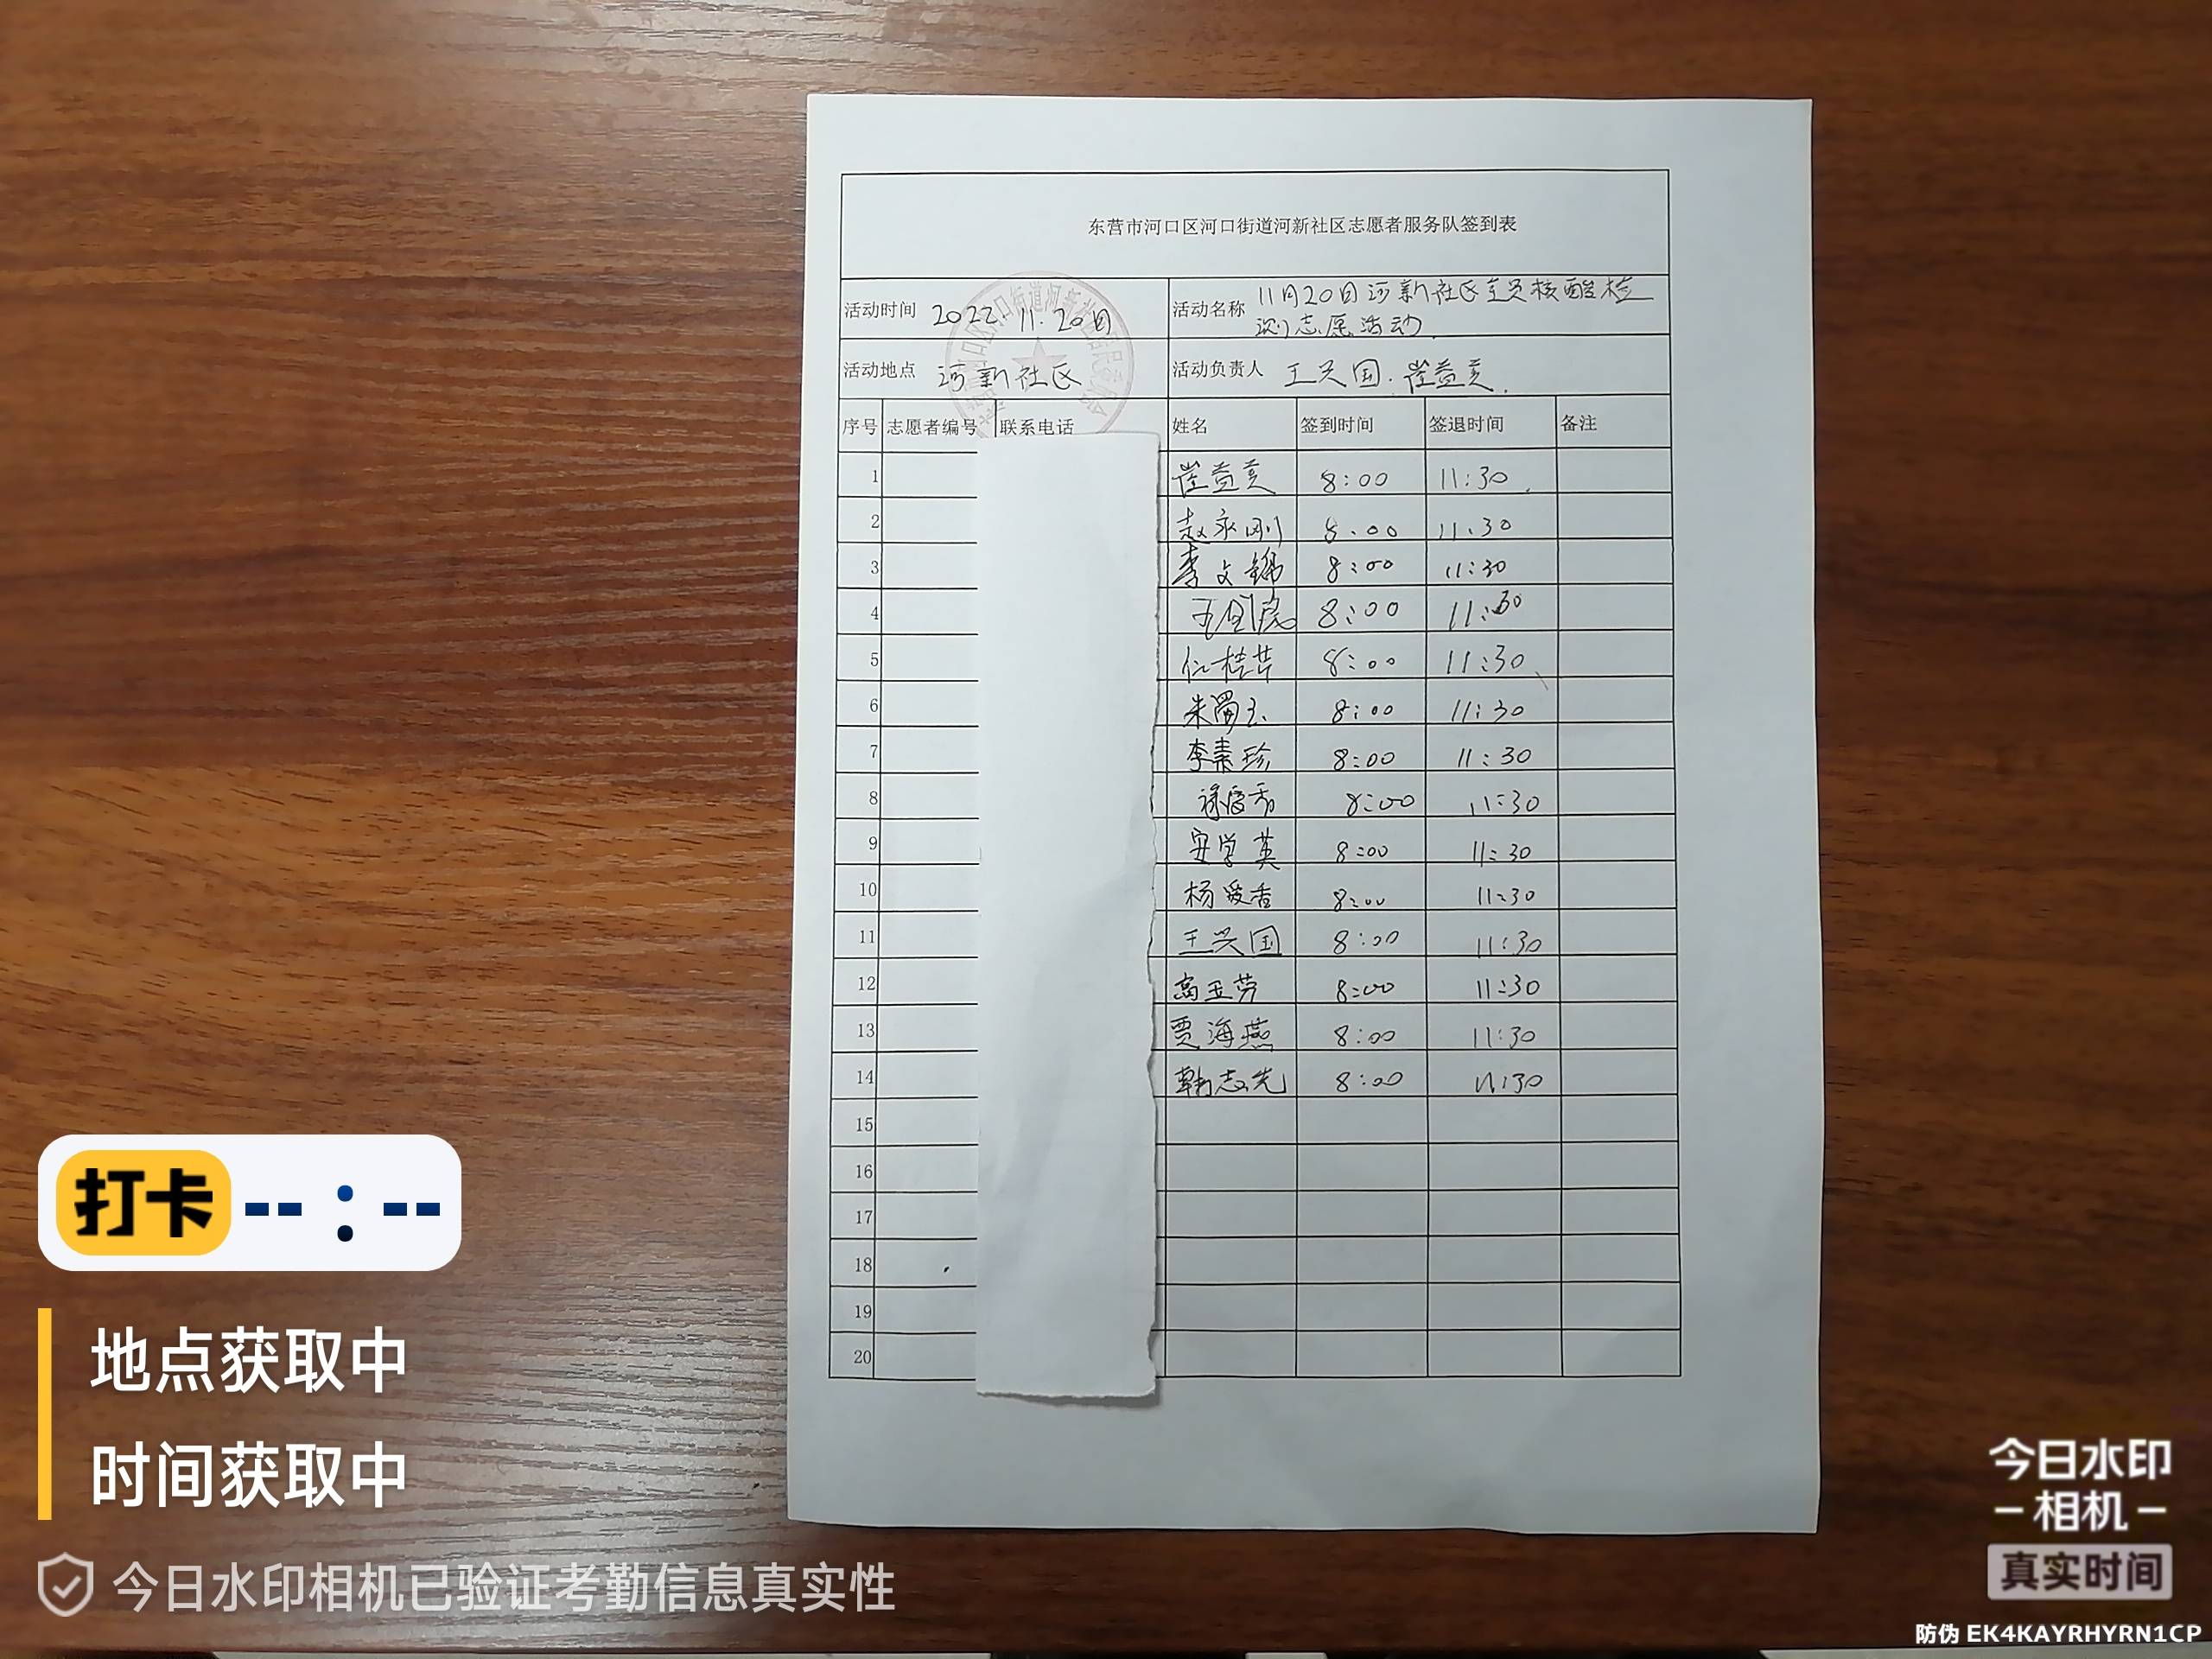 东营市河口区河口街道河新社区志愿者服务队签到表
活动时间 2022.11.20日 活动名称 11月20日河新社区全员核酸检
测志愿活动
活动地点 河新社区 活动负责人 王兴国.崔益美.
序号 志愿者编号 联系电话 姓名 签到时间 签退时间 备注
1 崔益美 8:00 11:30
2 赵永刚 8:00 11:30
3 李文锦 8:00 11:30
4 8:00 11:30
5 任桂芹 8:00 11:30
6 朱蜀玉 8:00 11:30
7 李素珍 8:00 11:30
8 8:00 11:30
9 安学英 8:00 11:30
10 杨爱香 8:00 11:30
11 王兴国 8:00 11:30
12 高玉芳 8:00 11:30
13 贾海燕 8:00 11:30
14 韩志先 8:00 11:30
15
16
17
18
19
20
打卡 --:--
地点获取中
时间获取中
今日水印相机已验证考勤信息真实性
今日水印
-相机-
真实时间
防伪 EK4KAYRHYRN1CP